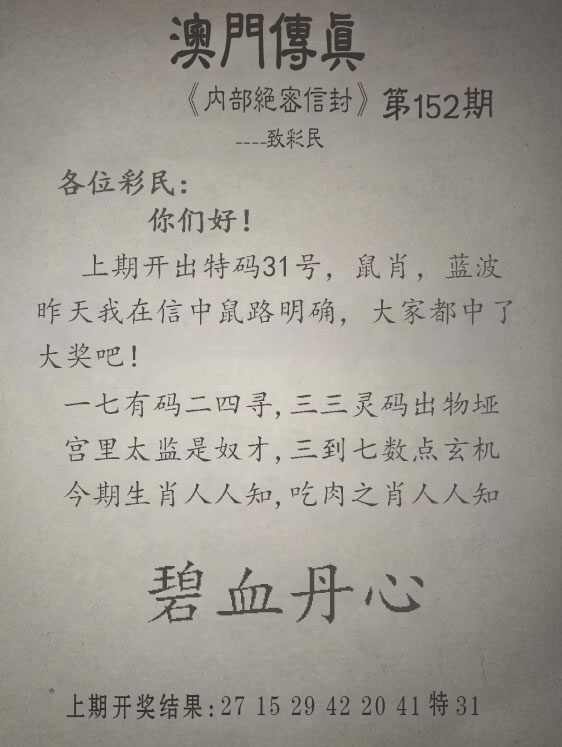 澳門傳眞
《内部絕密信封》第152期
----致彩民
各位彩民：
你们好！
上期开出特码31号，鼠肖，蓝波
昨天我在信中鼠路明确，大家都中了
大奖吧！
一七有码二四寻,三三灵码出物垭
宫里太监是奴才,三到七数点玄机
今期生肖人人知,吃肉之肖人人知
碧血丹心
上期开奖结果:27 15 29 42 20 41 特31